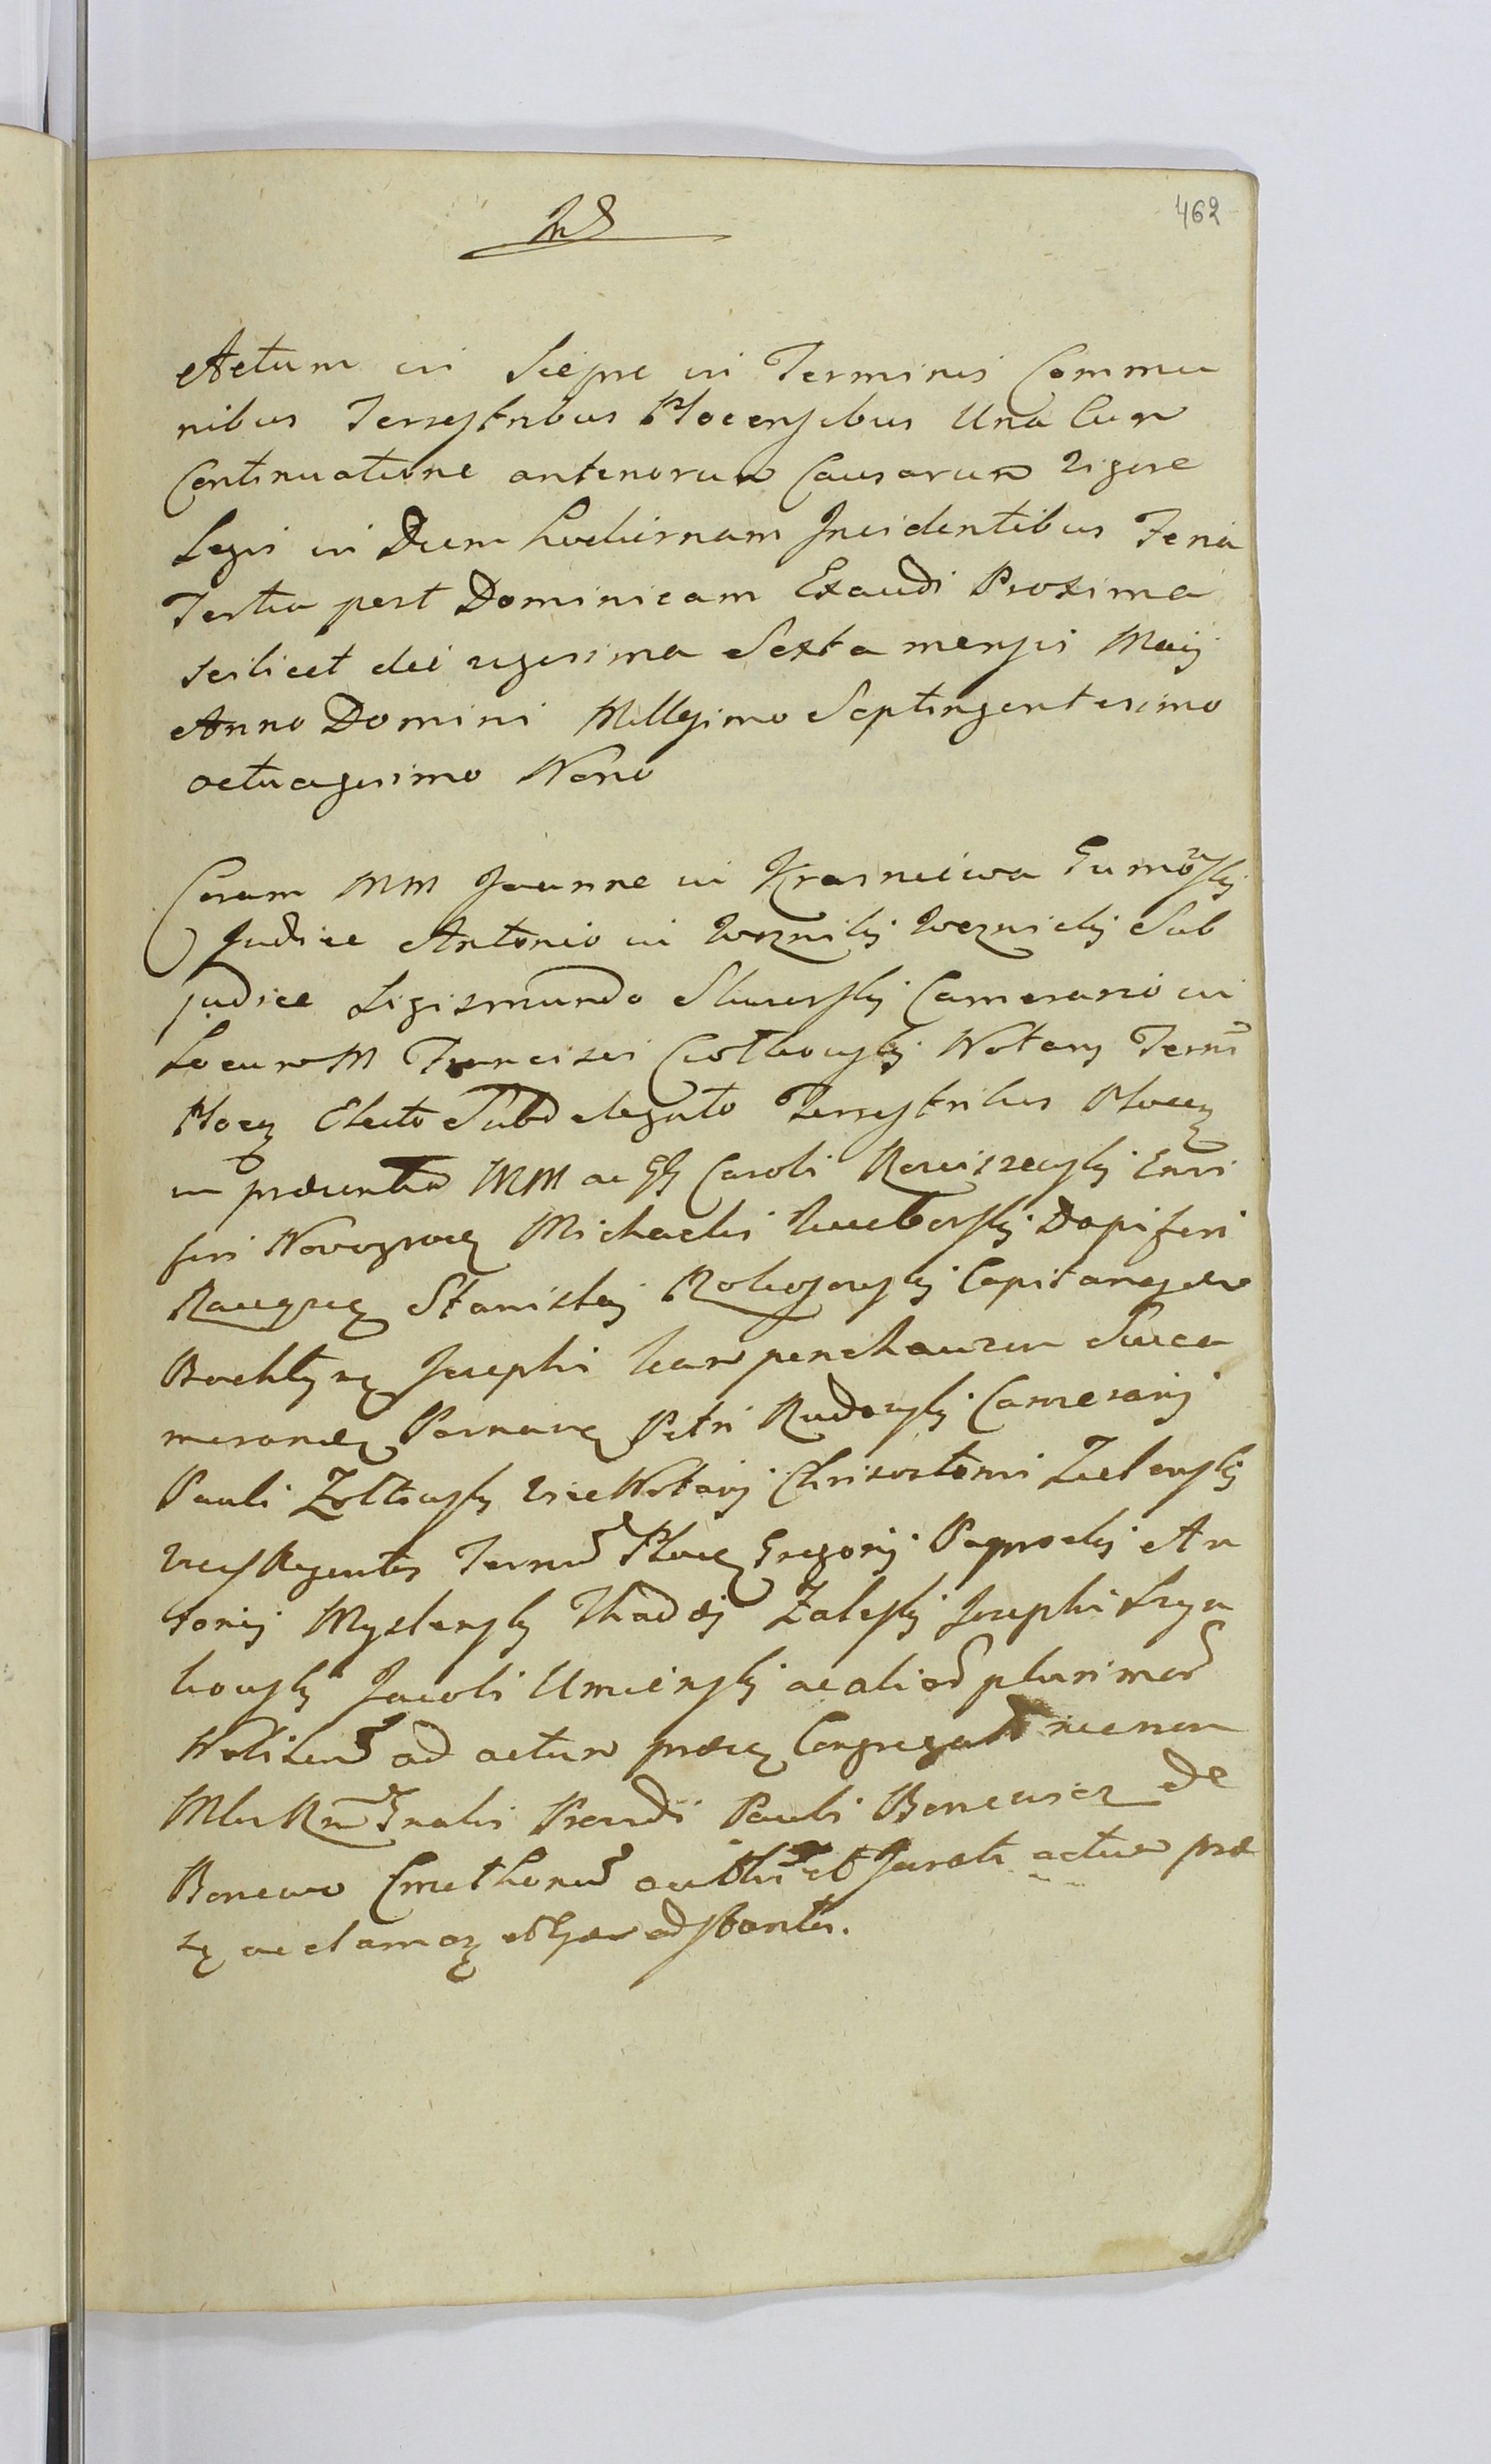 462
Actum in Sieprc in Terminis Commu
nibus Terrestribus Plocensibus Una Cum
Continuatione anteriorum Causarum vigore
Legis in Diem hodiernam Incidentibus Feria
Tertia post Dominicam Exaudi Proxima
scilicet die vigesima Sexta mensis Maij
Anno Domini Millesimo Septingentesimo
octuagesimo Nono
Coram MM Joanne in Krasniewa Gumowskj
Judice Antonio in Woznikj Woznickj Sub
judice Sigismundo Camerario in
Locum M Francisci Notarij Terris
Plocen Electo Subdelegato Terrestribus Plocen
in praesentia MM ac GG Caroli Ensi
feri Michaelis Dapiferi
Stanislaj Capitanej
Josephi Succa
Petri Rudowskj Camerarij
Pauli Zołtowskj Vice Notarij Chrisostomi Zielenskj
Vice Regentis Terris Plocen Gregorij Paprockj An
tonij Myslenskj Thadej Zaleskj Josephi
Jacobi Umienskj ac aliorum plurimorum
Nobilium ad actum praesen Congregator necnon
Pauli Boncewicz de
Boncewo et Jurati actum prae
sen acclaman adstantis.